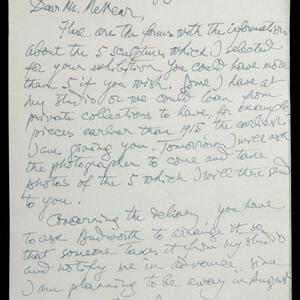 Dear Mr. McNear,
Here are the forms with the information
about the 5 sculptures which I selected
for your exhibition. You could have more
than 5 if you wish. Some I have at
my studio or we could loan from
private collections to have for example
pieces earlier than 1915, the earliest
I am giving you. Tomorrow I will ask
the photographer to come and take
photos of the 5 which I will then send
to you.
Concerning the delivery, you have
to ask Budworth to arrange it so
that someone takes it from my studio
and notify me in advance, since
I am planning to be away in August